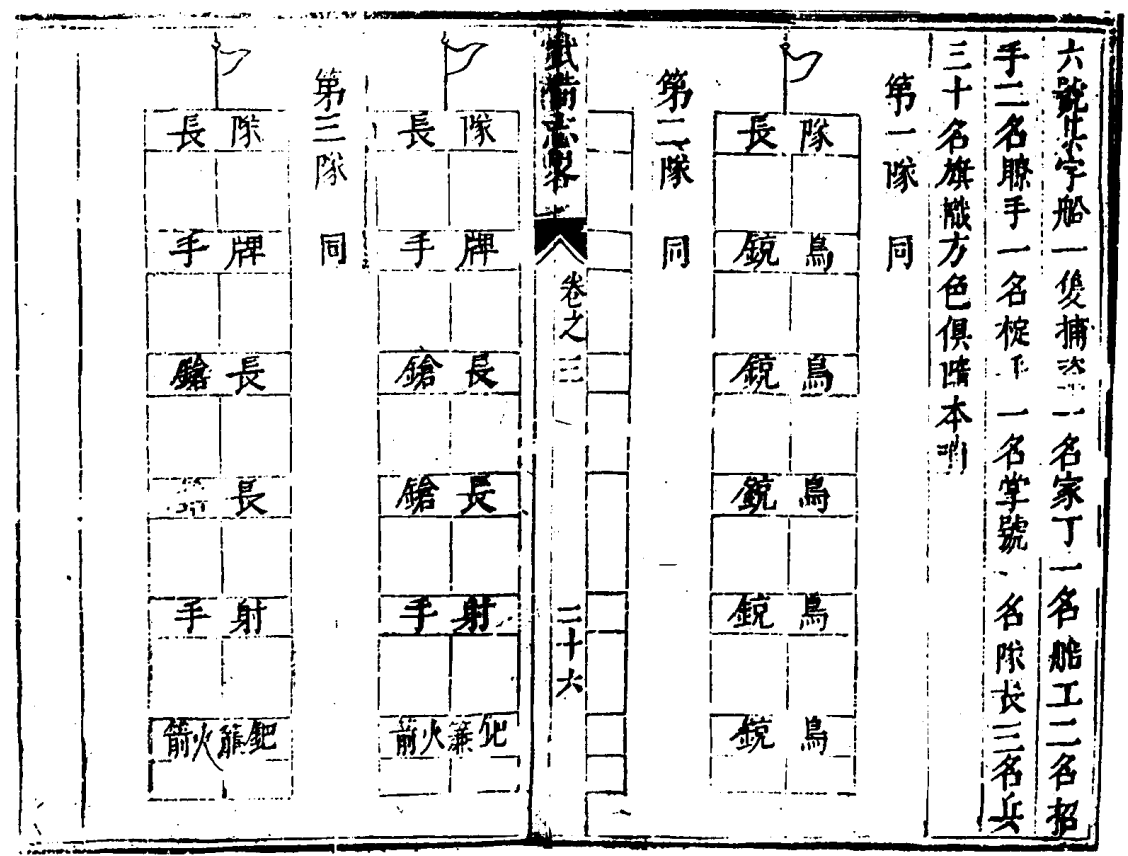 六號某字船一隻捕盜一名家丁一名舵工二名招
手二名瞭手一名椗手一名掌號一名隊长三名兵
三十名旗幟方色俱隨本哨
第一隊 同
隊長
鳥銃
鳥銃
鳥銃
鳥銃
鳥銃
第二隊 同
武備志畧
卷之三
二十六
隊長
牌手
長鎗
長鎗
射手
鈀簾火箭
第三隊 同
隊長
牌手
長鎗
長
射手
鈀簾火箭